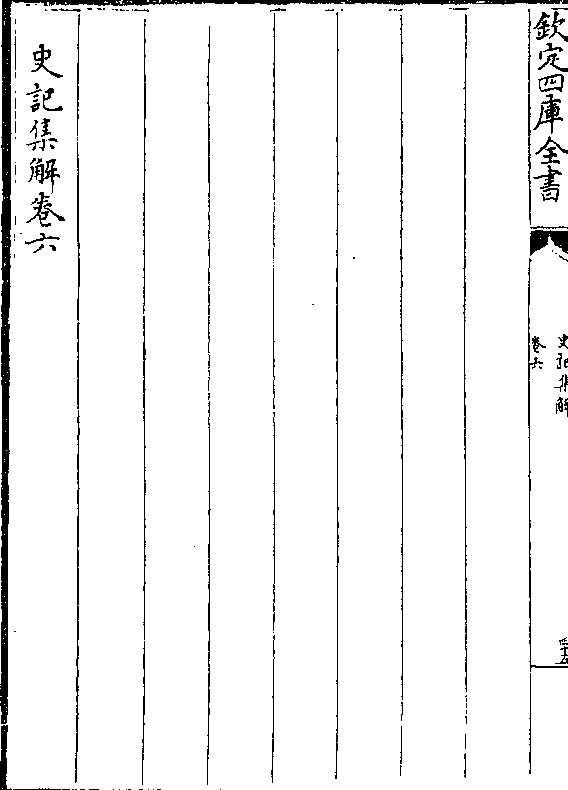 欽定四庫全書
史記集解
卷六
史記集解卷六